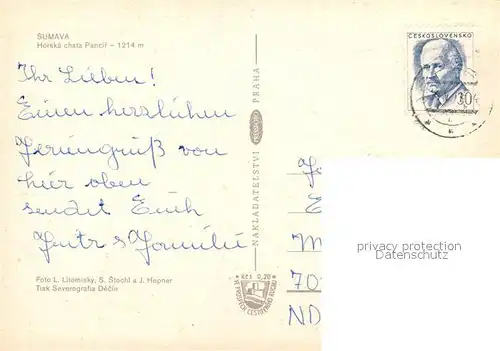 ŠUMAVA
Horská chata Pancíř – 1214 m
Ihr Lieben!
Einen herzlichen
Feriengruß von
hier oben
sendet Euch
Foto L. Litomiský, S. Štochl a J. Hepner
Tisk Severografia Děčín
NAKLADATELSTVÍ PRAHA
Kčs 0,20
ČESKOSLOVENSKO
70
ND
privacy protection
Datenschutz